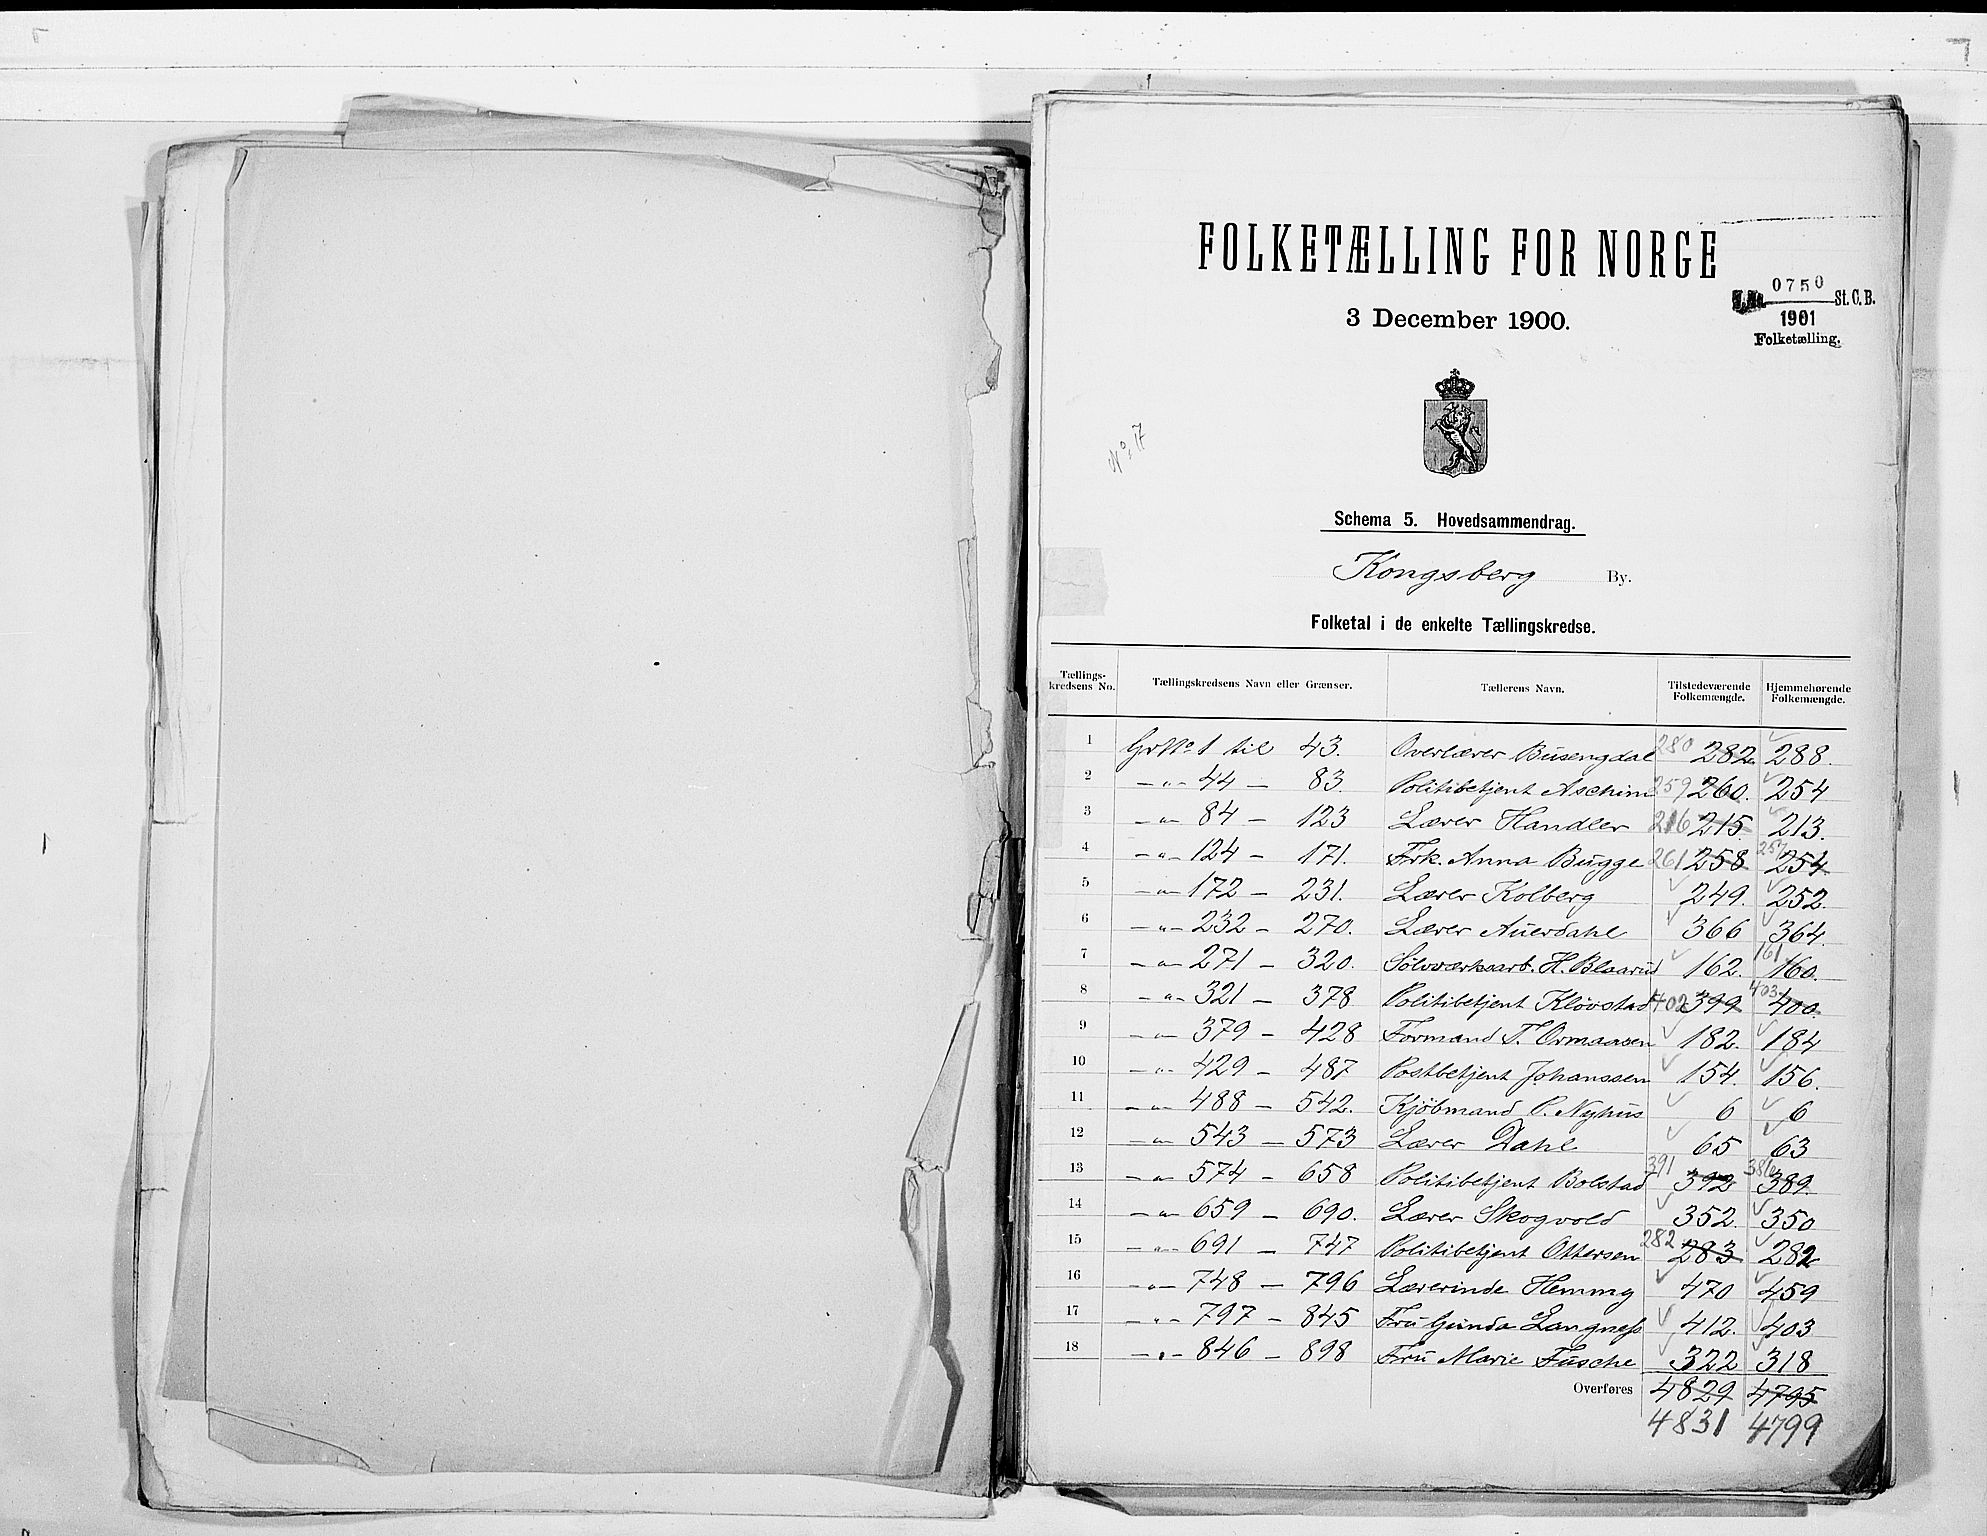 FOLKETÆLLING FOR NORGE
0750
J.No. St. C. B.
1901
Folketælling.
3 December 1900.
No. 17
Schema 5. Hovedsammendrag.
Kongsberg By.
Folketal i de enkelte Tællingskredse.
Tællings-kredsens No. Tællingskredsens Navn eller Grænser. Tællerens Navn. Tilstedeværende Folkemængde. Hjemmehørende Folkemængde.
1 Gr No 1 til 43. Overlærer Busengdal 280 282 288.
2 —"— 44 — 83. Politibetjent Aschim 259 260. 254
3 —"— 84 — 123 Lærer Handler 216 215. 213.
4 —"— 124 — 171. Frk. Anna Bugge 261 258 257 254
5 —"— 172 — 231. Lærer Kolberg 249. 252.
6 —"— 232 — 270. Lærer Auerdahl 366 364.
7 —"— 271 — 320. Sølvværksarb. H. Blaarud 162. 161 160.
8 —"— 321 — 378 Politibetjent Kløvstad 402 399 403 400.
9 —"— 379 — 428 Formand T. Ormaasen 182. 184
10 —"— 429 — 487 Postbetjent Johanssen 154. 156.
11 —"— 488 — 542. Kjøbmand P. Nyhus 6 6
12 —"— 543 — 573 Lærer Dahl 65 63
13 —"— 574 — 658 Politibetjent Bolstad 391 392 386 389.
14 —"— 659 — 690. Lærer Skogvold 352. 350
15 —"— 691 — 747 Politibetjent Ottersen 282 283 282
16 —"— 748 — 796 Lærerinde Hemmg 470 459
17 —"— 797 — 845 Fru Gunda Langness 412. 403
18 —"— 846 — 898 Fru Marie Fusche 322 318
Overføres 4829 4795
4831 4799